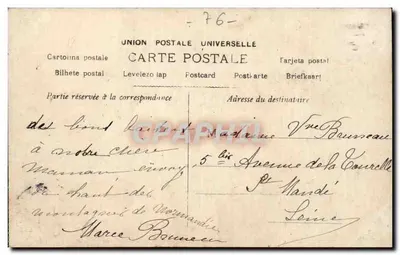 76-
UNION POSTALE UNIVERSELLE
CARTE POSTALE
Cartolina postale
Tarjeta postal
Bilhete postal Levelezo lap Postcard Postkarte Briefkaart
Partie réservée à la correspondance
Adresse du destinataire
des bons baisers
à notre chère
maman
haut des
montagnes de Normandie
Marce Bruneau
Madame Vve Bruneau
5 bis Avenue de la Tourelle
St Mandé
Seine